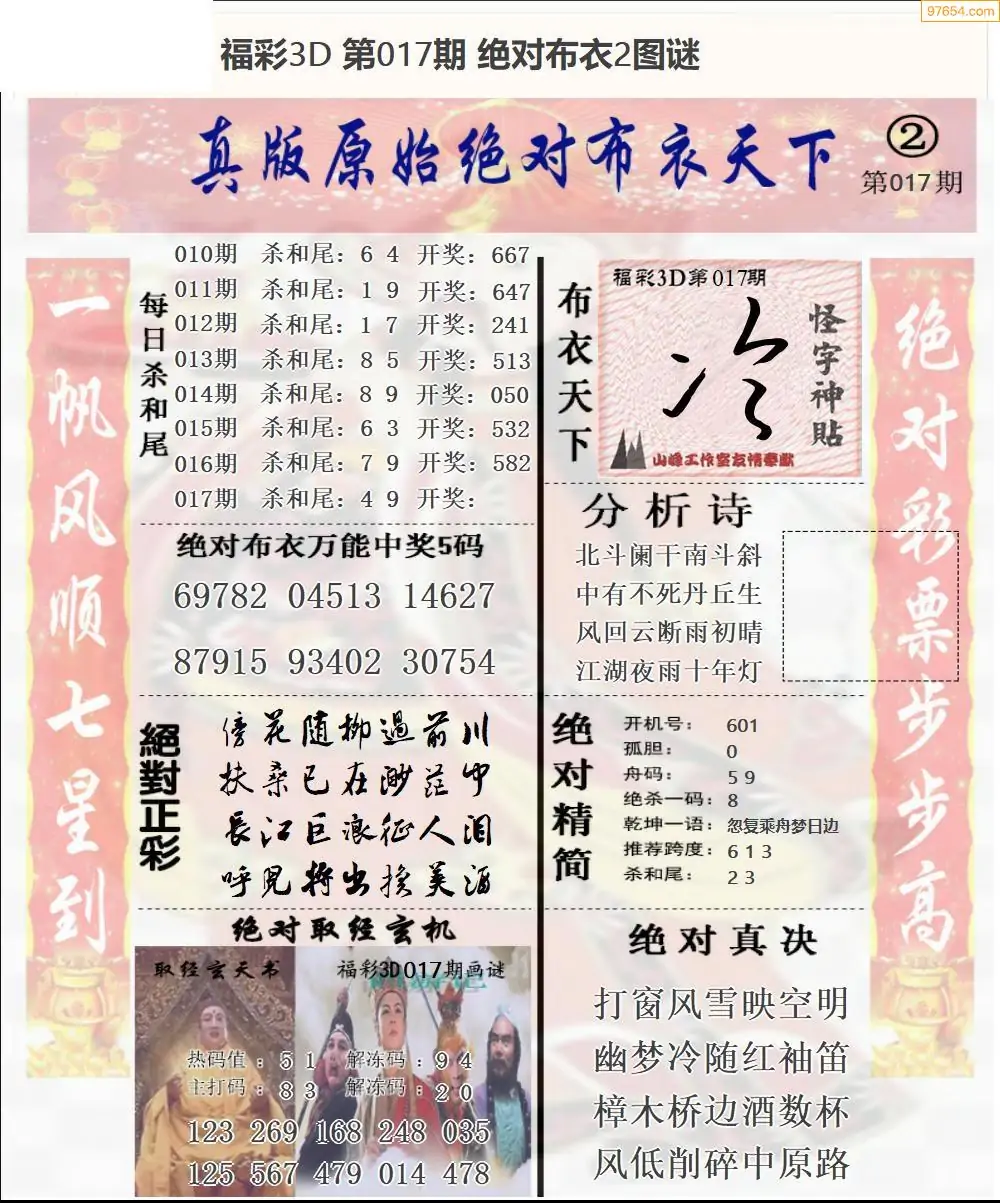 97654.com
福彩3D 第017期 绝对布衣2图谜
真版原始绝对布衣天下
②
第017期
一帆风顺七星到
每日杀和尾
010期 杀和尾：6 4 开奖：667
011期 杀和尾：1 9 开奖：647
012期 杀和尾：1 7 开奖：241
013期 杀和尾：8 5 开奖：513
014期 杀和尾：8 9 开奖：050
015期 杀和尾：6 3 开奖：532
016期 杀和尾：7 9 开奖：582
017期 杀和尾：4 9 开奖：
绝对布衣万能中奖5码
69782 04513 14627
87915 93402 30754
絕對正彩
傍花随柳過前川
扶桑已在渺茫中
長江巨浪征人泪
呼児将出换美酒
绝对取经玄机
取经玄天书
福彩3D017期画谜
热码值：5 1 解冻码：9 4
主打码：8 3 解冻码：2 0
123 269 168 248 035
125 567 479 014 478
布衣天下
福彩3D第017期
冷
怪字神貼
山峰工作室友情奉献
分析诗
北斗阑干南斗斜
中有不死丹丘生
风回云断雨初晴
江湖夜雨十年灯
绝对精简
开机号：601
孤胆：0
舟码：5 9
绝杀一码：8
乾坤一语：忽复乘舟梦日边
推荐跨度：6 1 3
杀和尾：2 3
绝对真决
打窗风雪映空明
幽梦冷随红袖笛
樟木桥边酒数杯
风低削碎中原路
绝对彩票步步高